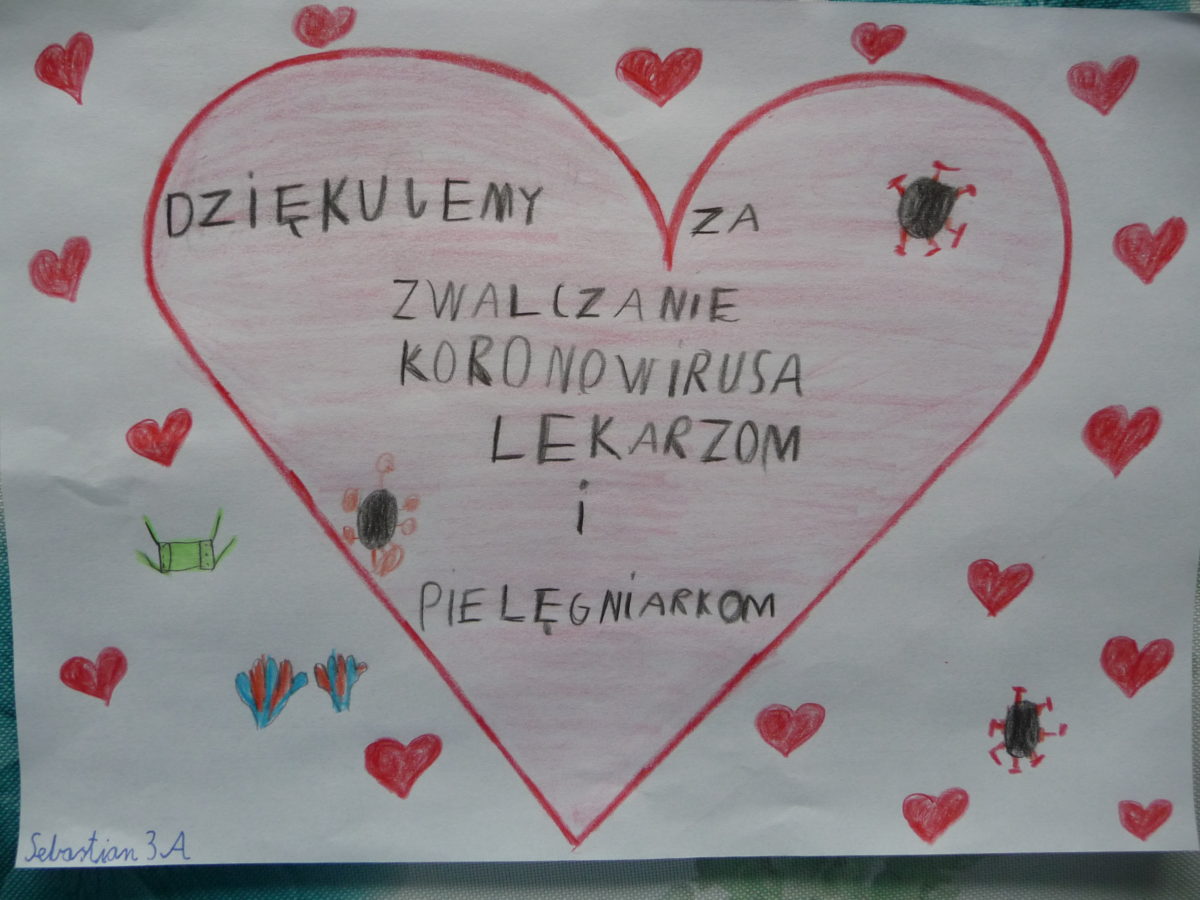 DZIĘKUJEMY ZA
ZWALCZANIE
KORONOWIRUSA
LEKARZOM
i
PIELĘGNIARKOM
Sebastian 3A